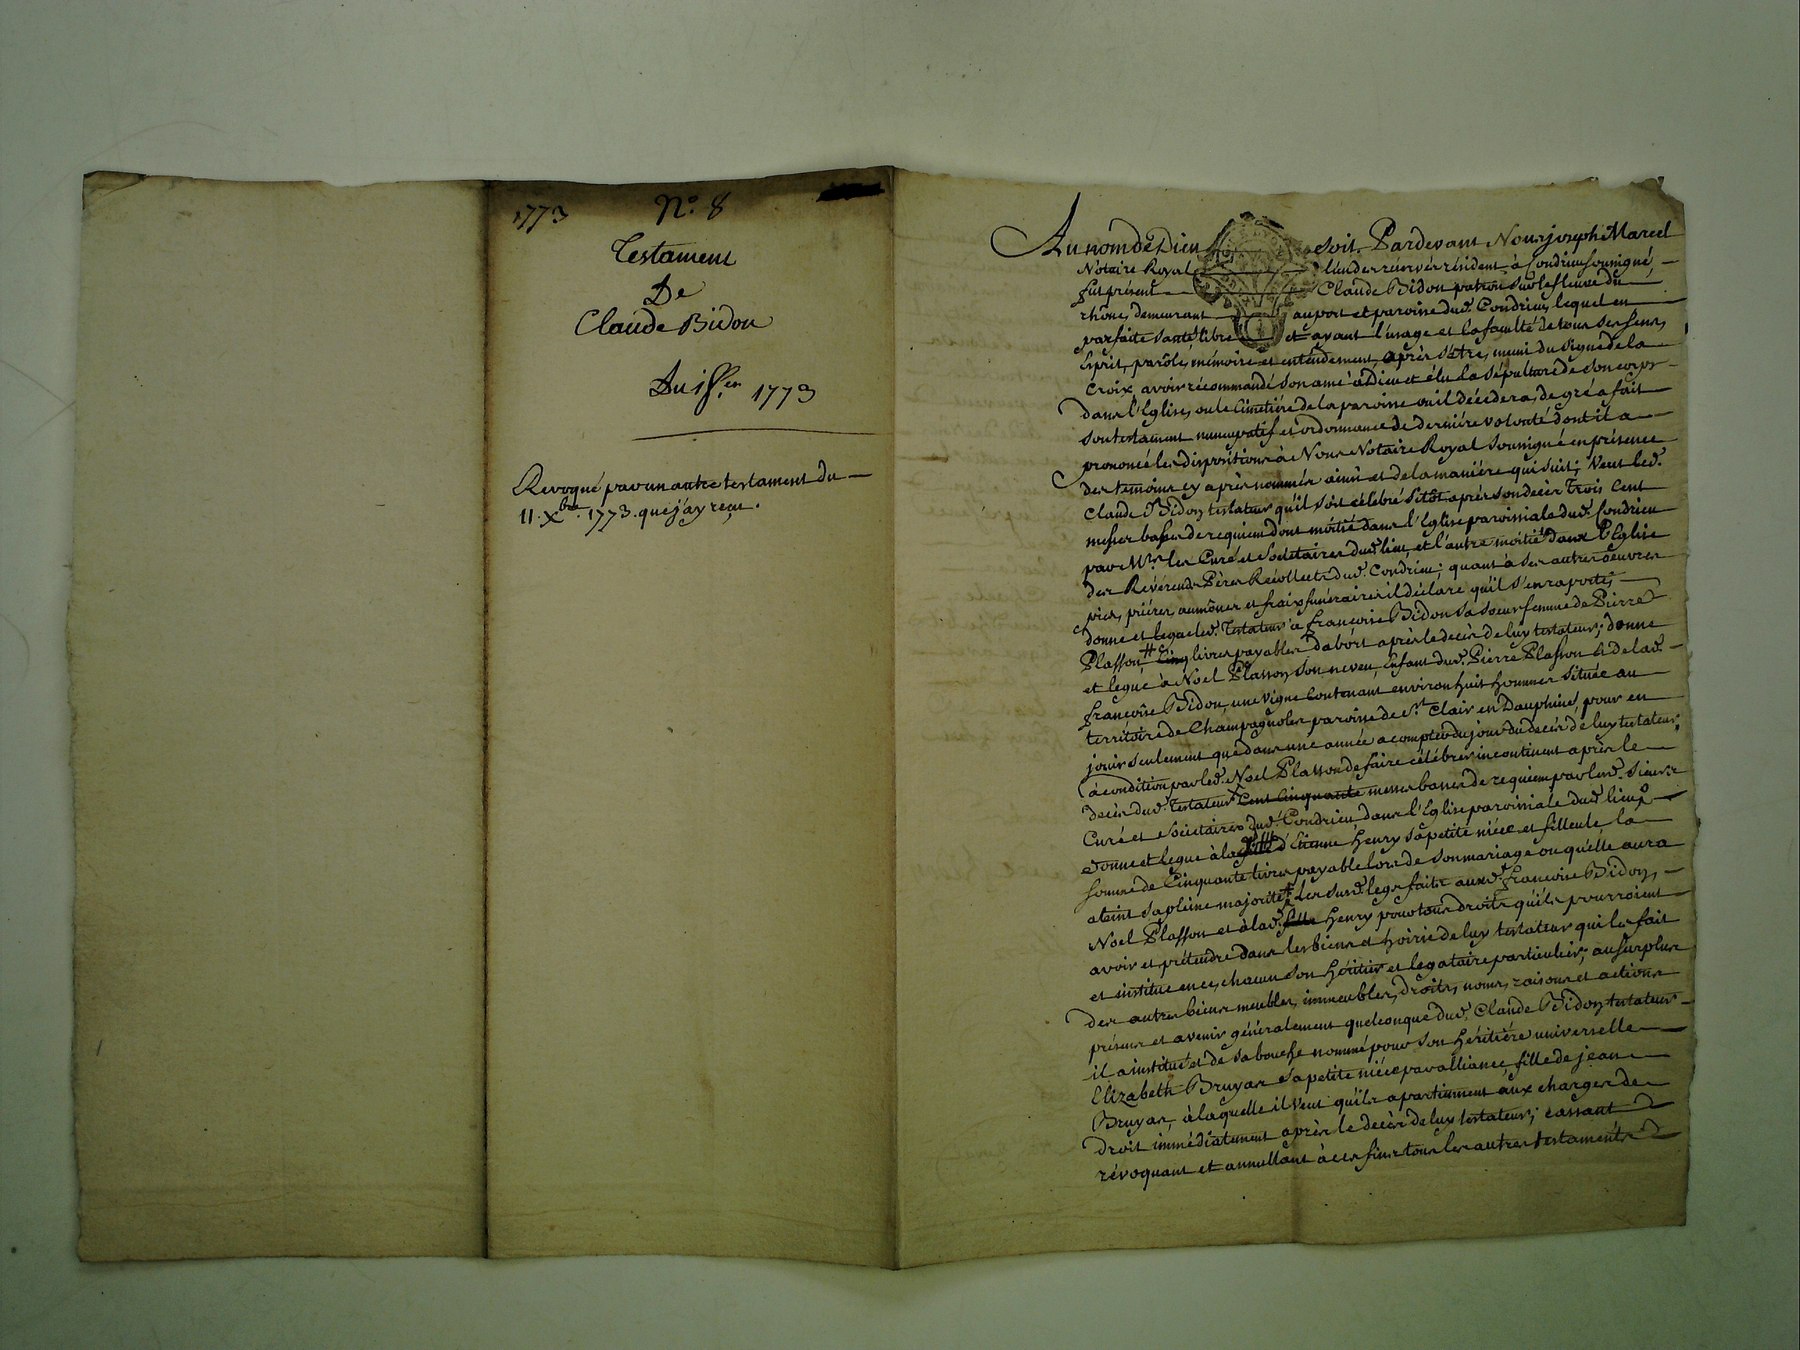 1773 N.º 8
Testament
De
Claude Bidon
Du 1773
Revoqué par un autre testament du
11. Xbre. 1773. que j'ay reçu.
Au nom de Dieu soit, Pardevant Nous joseph Marcel
Notaire Royal résident à Condrieu soussigné,
fut présent Claude Bidon patron sur le fleuve du
rhône, demeurant au port et paroisse dud. Condrieu, lequel en
parfaite santé, libre et ayant l'usage et la faculté de tous ses sens,
Esprit, parôle, mémoire et entendement, après s'etre muni du signe de la
Croix, avoir récommandé son ame à Dieu et élu la sépulture de son corps
dans l'Eglise, ou le Cimetiére de la paroisse ou il décédera, de gré a fait
son testament nuncupatif et ordonnance de derniére volonté dont il a
prononcé les dispositions à Nous Notaire Royal soussigné en présence
des temoins cy après nommés ainsi et de la maniére qui suit; Veut led.
Claude Bidon testateur qu'il soit célébré sitôt après son decès Trois Cent
messes basses de requiem dont moitié dans l'Eglise paroissiale dud. Condrieu
par Mrs. les Curé et Societaires dud. lieu, et l'autre moitié dans l'Eglise
des Révérends Péres Récollects dud. Condrieu; quant à ses autres oeuvres
pies, priéres, aumônes et frais funéraires il déclare qu'il s'en raporte;
donne et legue led. Testateur à françoise Bidon sa soeur femme de Pierre
Plasson # Cinq livres payables d'abort après le decès de luy testateur; donne
et legue à Noel Plasson son neveu, Enfant dud. Pierre Plasson & de lad.
françoise Bidon, une vigne Contenant environ huit hommes située au
territoire de Champagnoles paroisse de St. Clair en Dauphiné, pour en
jouir seulement que dans une année a compter du jour du decès de luy testateur;
à condition par led. Noel Plasson de faire célébrer incontinent après le
decès dud. Testateur Cent Cinquante messes basses de requiem par lesd. sieurs
Curé et Sociétaires dud. Condrieu dans l'Eglise paroissiale dud. lieu;
donne et legue à la d'Etienne Henry sa petite niéce et filleule la
somme de Cinquante livres payable lors de son mariage ou qu'elle aura
ateint sa pleine majorité, Les susd. legs faits auxd. françoise Bidon,
Noel Plasson et à lad. Henry pour tous droits qu'ils pourroient
avoir et prétendre dans les biens et hoirie de luy testateur qui les fait
et institue en ce, chacun son héritier et legataire particulier; au surplus
des autres biens meubles, immeubles, droits, noms, raisons et actions
présens et avenir généralement quelconque dud. Claude Bidon testateur
il a institué et de sa bouche nommé pour son héritiére universelle
Elizabeth Bruyas sa petite niéce par alliance, fille de jean
Bruyas, à laquelle il veut qu'ils apartiennent aux charges de
droit immédiatement après le decès de luy testateur; cassant
révoquant et annullant à ces fins tous les autres testaments